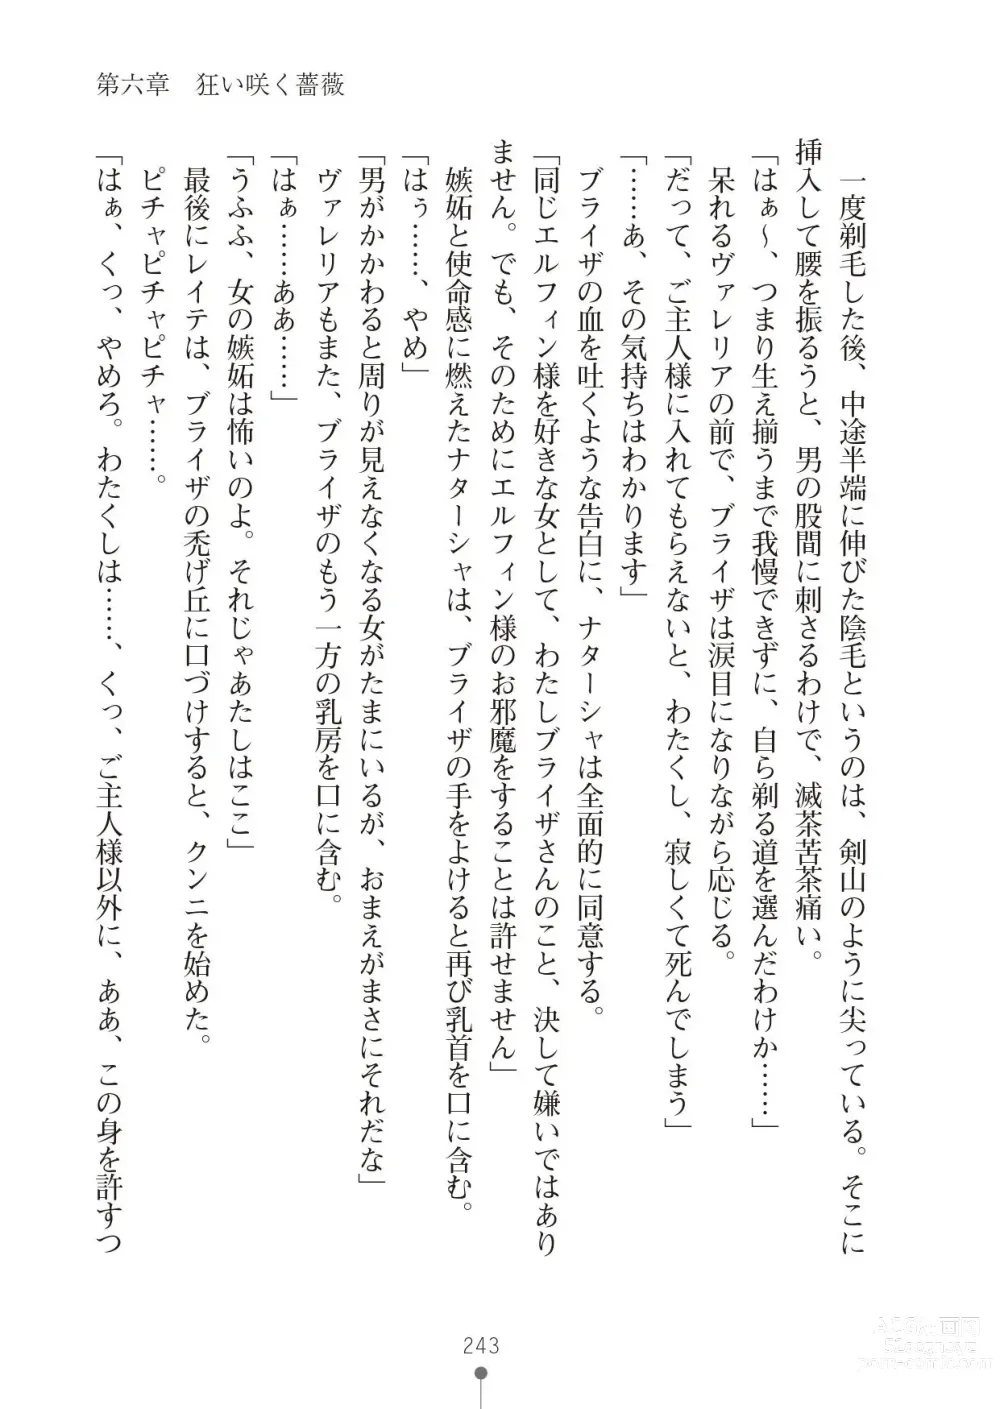 第六章　狂い咲く薔薇
　一度剃毛した後、中途半端に伸びた陰毛というのは、剣山のように尖っている。そこに
挿入して腰を振るうと、男の股間に刺さるわけで、滅茶苦茶痛い。
「はぁ〜、つまり生え揃うまで我慢できずに、自ら剃る道を選んだわけか……」
　呆れるヴァレリアの前で、ブライザは涙目になりながら応じる。
「だって、ご主人様に入れてもらえないと、わたくし、寂しくて死んでしまう」
「……あ、その気持ちはわかります」
　ブライザの血を吐くような告白に、ナターシャは全面的に同意する。
「同じエルフィン様を好きな女として、わたしブライザさんのこと、決して嫌いではあり
ません。でも、そのためにエルフィン様のお邪魔をすることは許せません」
　嫉妬と使命感に燃えたナターシャは、ブライザの手をよけると再び乳首を口に含む。
「はぅ……、やめ」
「男がかかわると周りが見えなくなる女がたまにいるが、おまえがまさにそれだな」
　ヴァレリアもまた、ブライザのもう一方の乳房を口に含む。
「はぁ……ああ……」
「うふふ、女の嫉妬は怖いのよ。それじゃあたしはここ」
　最後にレイテは、ブライザの禿げ丘に口づけすると、クンニを始めた。
　ピチャピチャピチャ……。
「はぁ、くっ、やめろ。わたくしは……、くっ、ご主人様以外に、ああ、この身を許すつ
243